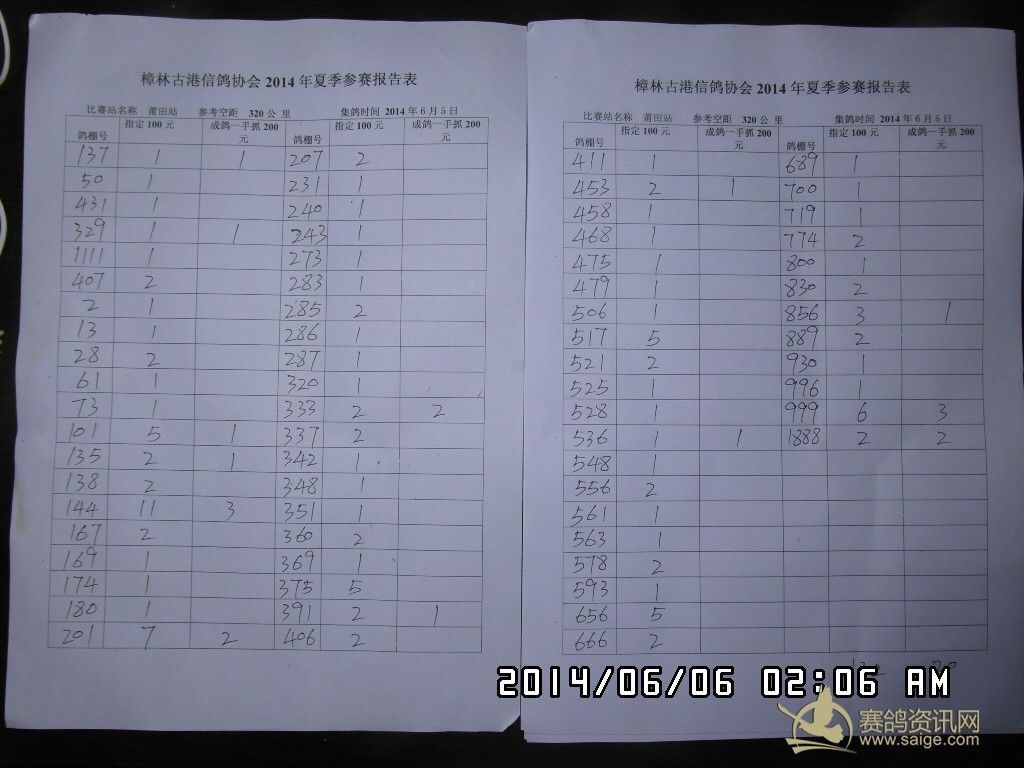 樟林古港信鸽协会 2014 年夏季参赛报告表
比赛站名称 莆田站 参考空距 320 公 里 集鸽时间 2014 年 6 月 5 日
鸽棚号 指定 100 元 成鸽一手抓 200 元 鸽棚号 指定 100 元 成鸽一手抓 200 元
137 1 1 207 2
50 1 231 1
431 1 240 1
329 1 1 243 1
1111 1 273 1
407 2 283 1
2 1 285 2
13 1 286 1
28 2 287 1
61 1 320 1
73 1 333 2 2
101 5 1 337 2
135 2 1 342 1
138 2 348 1
144 11 3 351 1
167 2 360 2
169 1 369 1
174 1 375 5
180 1 391 2 1
201 7 2 406 2
樟林古港信鸽协会 2014 年夏季参赛报告表
比赛站名称 莆田站 参考空距 320 公 里 集鸽时间 2014 年 6 月 5 日
鸽棚号 指定 100 元 成鸽一手抓 200 元 鸽棚号 指定 100 元 成鸽一手抓 200 元
411 1 689 1
453 2 1 700 1
458 1 719 1
468 1 774 2
475 1 800 1
479 1 830 2
506 1 856 3 1
517 5 889 2
521 2 930 1
525 1 996 1
528 1 999 6 3
536 1 1 1888 2 2
548 1
556 2
561 1
563 1
578 2
593 1
656 5
666 2
2014/06/06 02:06 AM
赛鸽资讯网
www.saige.com